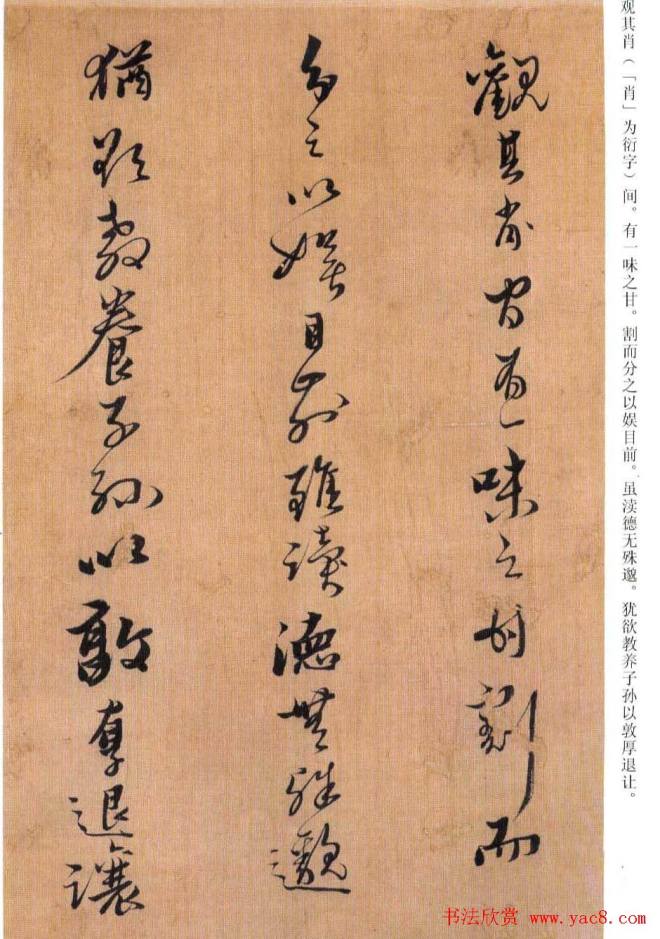 觀其肖間有一味之甘割而
分之以娱目前雖瀆德無殊邈
猶欲教養子孫以敦厚退讓
观其肖（「肖」为衍字）间。有一味之甘。割而分之以娱目前。虽渎德无殊邈。犹欲教养子孙以敦厚退让。
书法欣赏 www.yac8.com